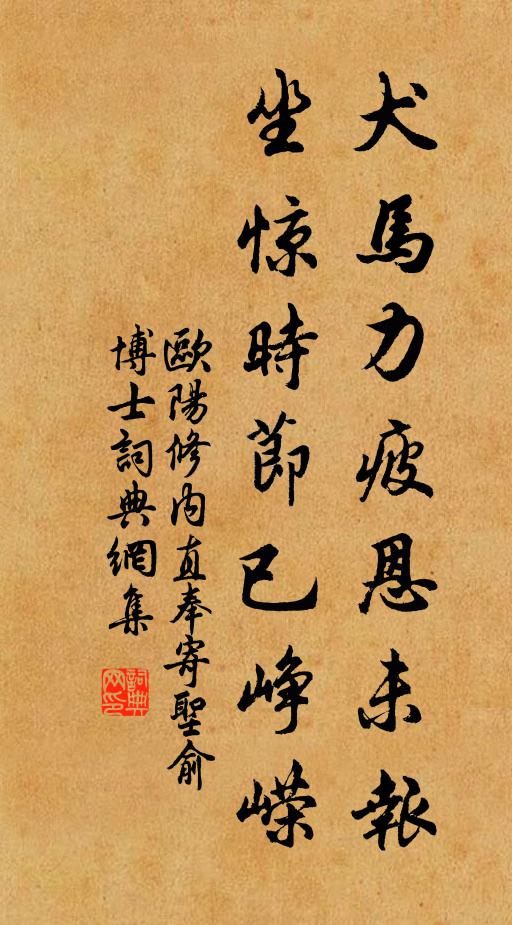 犬馬力疲恩未報
坐惊時節已峥嵘
歐陽修內直奉寄聖俞
博士詞典網集
詞典网印